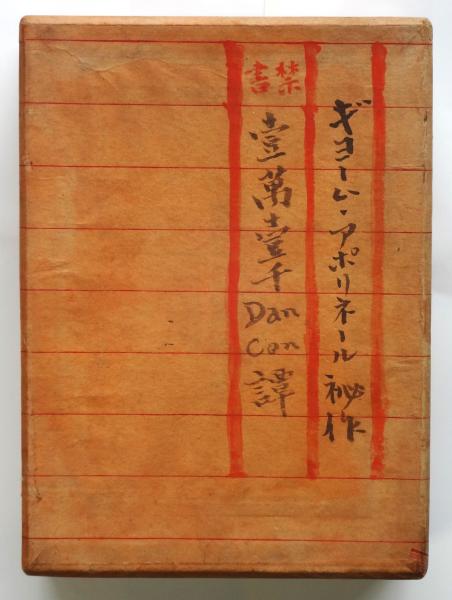 ギヨーム・アポリネール 秘作
禁書
壹萬壹千Dan Con譚